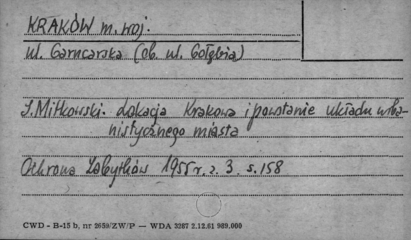 KRAKÓW m. woj.
ul. Garncarska (ob. ul. Gołębia)
J. Mitkowski. Lokacja Krakowa i powstanie układu urba-
nistycznego miasta
Ochrona Zabytków 1955 r. z. 3 s. 158
CWD - B-15 b, nr 2659/ZW/P — WDA 3287 2.12.61 989.000